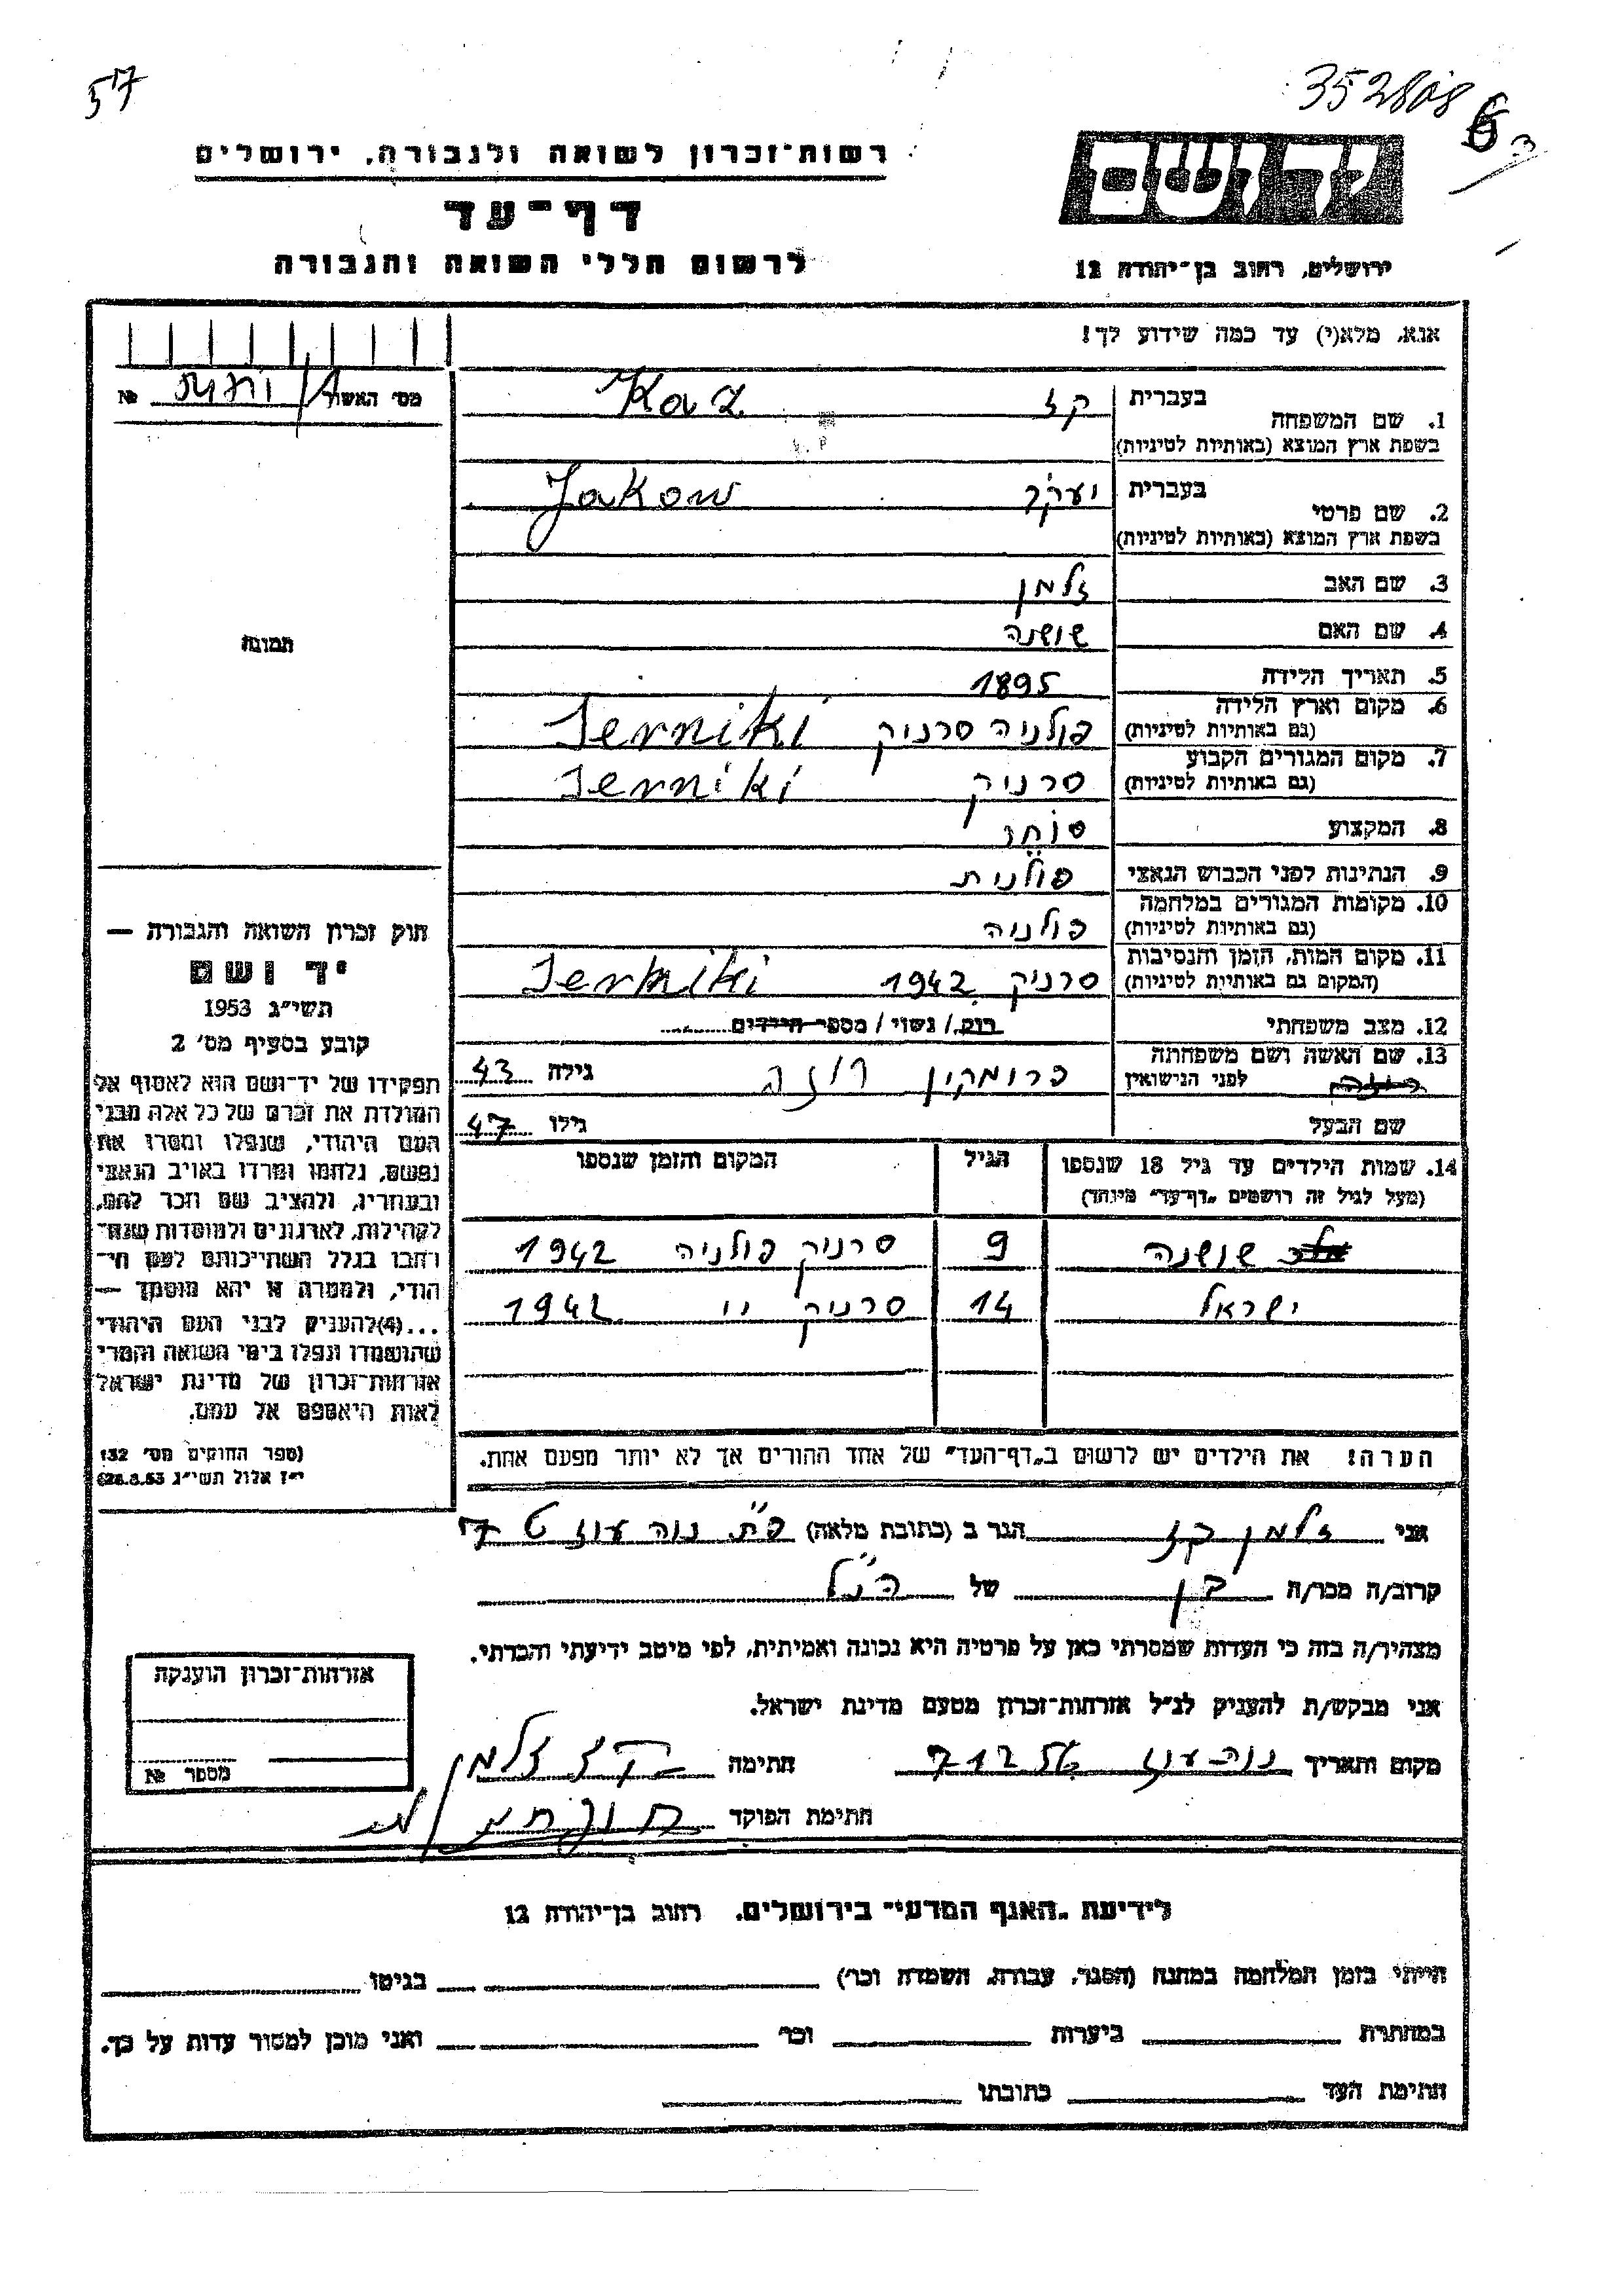 57
352808
6
3
יד ושם
רשות־זכרון לשואה ולגבורה, ירושלים
דף־עד
לרשום חללי השואה והגבורה
ירושלים, רחוב בן־יהודה 12
אנא, מלא(י) עד כמה שידוע לך!
מס׳ האשור №
1. שם המשפחה בעברית קז Kaz
בשפת ארץ המוצא (באותיות לטיניות)
2. שם פרטי בעברית יעקב Jakow
בשפת ארץ המוצא (באותיות לטיניות)
3. שם האב זלמן
4. שם האם שושנה
5. תאריך הלידה 1895
6. מקום וארץ הלידה פולניה סרניק Serniki
(גם באותיות לטיניות)
7. מקום המגורים הקבוע סרניק Serniki
(גם באותיות לטיניות)
8. המקצוע סוחר
9. הנתינות לפני הכבוש הנאצי פולנית
10. מקומות המגורים במלחמה פולניה
(גם באותיות לטיניות)
11. מקום המות, הזמן והנסיבות סרניק 1942 Serniki
(המקום גם באותיות לטיניות)
12. מצב משפחתי רווק / נשוי / מספר הילדים
13. שם האשה ושם משפחתה לפני הנישואין פרומקין רוזה גילה 43
שם הבעל גילו 47
14. שמות הילדים עד גיל 18 שנספו הגיל המקום והזמן שנספו
(מעל לגיל זה רושמים „דף־עד” מיוחד)
שושנה 9 סרניק פולניה 1942
ישראל 14 סרניק יי 1942
הערה! את הילדים יש לרשום ב„דף־העד” של אחד ההורים אך לא יותר מפעם אחת.
תמונה
חוק זכרון השואה והגבורה —
יד ושם
תשי״ג 1953
קובע בסעיף מס׳ 2
תפקידו של יד־ושם הוא לאסוף אל
המולדת את זכרם של כל אלה מבני
העם היהודי, שנפלו ומסרו את
נפשם, נלחמו ומרדו באויב הנאצי
ובעוזריו, ולהציב שם וזכר להם,
לקהילות, לארגונים ולמוסדות שנח־
רבו בגלל השתייכותם לעם הי־
הודי, ולמטרה זו יהא מוסמך —
...(4)להעניק לבני העם היהודי
שהושמדו ונפלו בימי השואה והמרי
אזרחות־זכרון של מדינת ישראל
לאות היאספם אל עמם.
(ספר החוקים מס׳ 132
י״ז אלול תשי״ג 28.8.53)
אני זלמן קז הגר ב (כתובת מלאה) פ״ת נוה עוז 7
קרוב/ה מכר/ה בן של הנ״ל
מצהיר/ה בזה כי העדות שמסרתי כאן על פרטיה היא נכונה ואמיתית, לפי מיטב ידיעתי והכרתי.
אני מבקש/ת להעניק לנ״ל אזרחות־זכרון מטעם מדינת ישראל.
מקום ותאריך נוה עוז חתימה קז זלמן
חתימת הפוקד
אזרחות־זכרון הוענקה
מספר №
לידיעת „האגף המדעי” בירושלים, רחוב בן־יהודה 12
הייתי בזמן המלחמה במחנה (הסגר, עבודה, השמדה וכו׳) בגיטו
במחתרת ביערות וכו׳ ואני מוכן למסור עדות על כך.
חתימת העד כתובתו